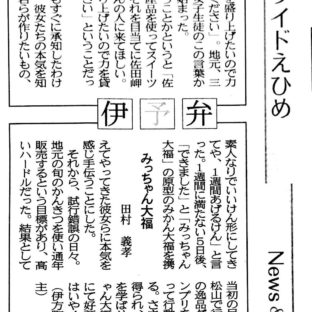 イドえひめ
News &
盛り上げたいので力
ください」。地元、三
女子生徒のこの言葉か
始まった。
うことかというと「佐
産品を使ってスイーツ
れを目当てに佐田岬
んの人に来てほしい。
たいので力を貸
さい」ということだっ
もすぐに承知したわけ
彼女たちの本気を知
らが作りたいもの、
伊予弁
みっちゃん大福
田村 義孝
素人なりでいいけん形にしてき
てや、1週間あげるけん」と言
った。1週間に満たない5日後、
「できました」と「みっちゃん
大福」の原型のみかん大福を携
えてやってきた彼女らに本気を
感じ手伝うことにした。
それから、試行錯誤の日々。
地元の旬のかんきつを使い通年
販売するという目標があり、高
いハードルだった。結果として
当初の目
松山で
の逸品
ンプリ
って行
る。さ
得られ
を学ば
ゃん大
にて好
はいや
（伊方
主）